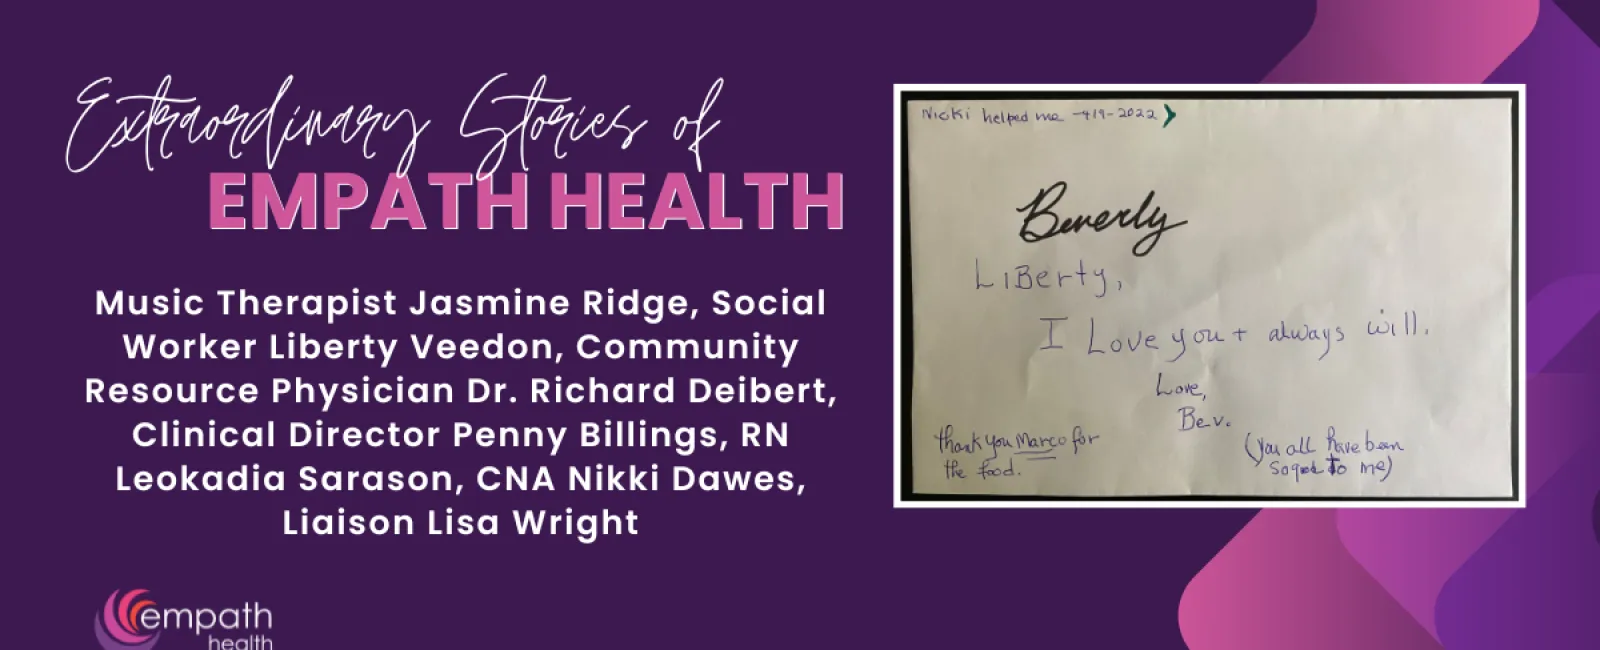 Extraordinary Stories of
EMPATH HEALTH
Music Therapist Jasmine Ridge, Social
Worker Liberty Veedon, Community
Resource Physician Dr. Richard Deibert,
Clinical Director Penny Billings, RN
Leokadia Sarason, CNA Nikki Dawes,
Liaison Lisa Wright
empath
health
Nicki helped me -4/9-2022
Beverly
LiBerty,
I Love you + always will.
Love,
Bev.
thank you Marco for
the food.
(you all have been
to me)